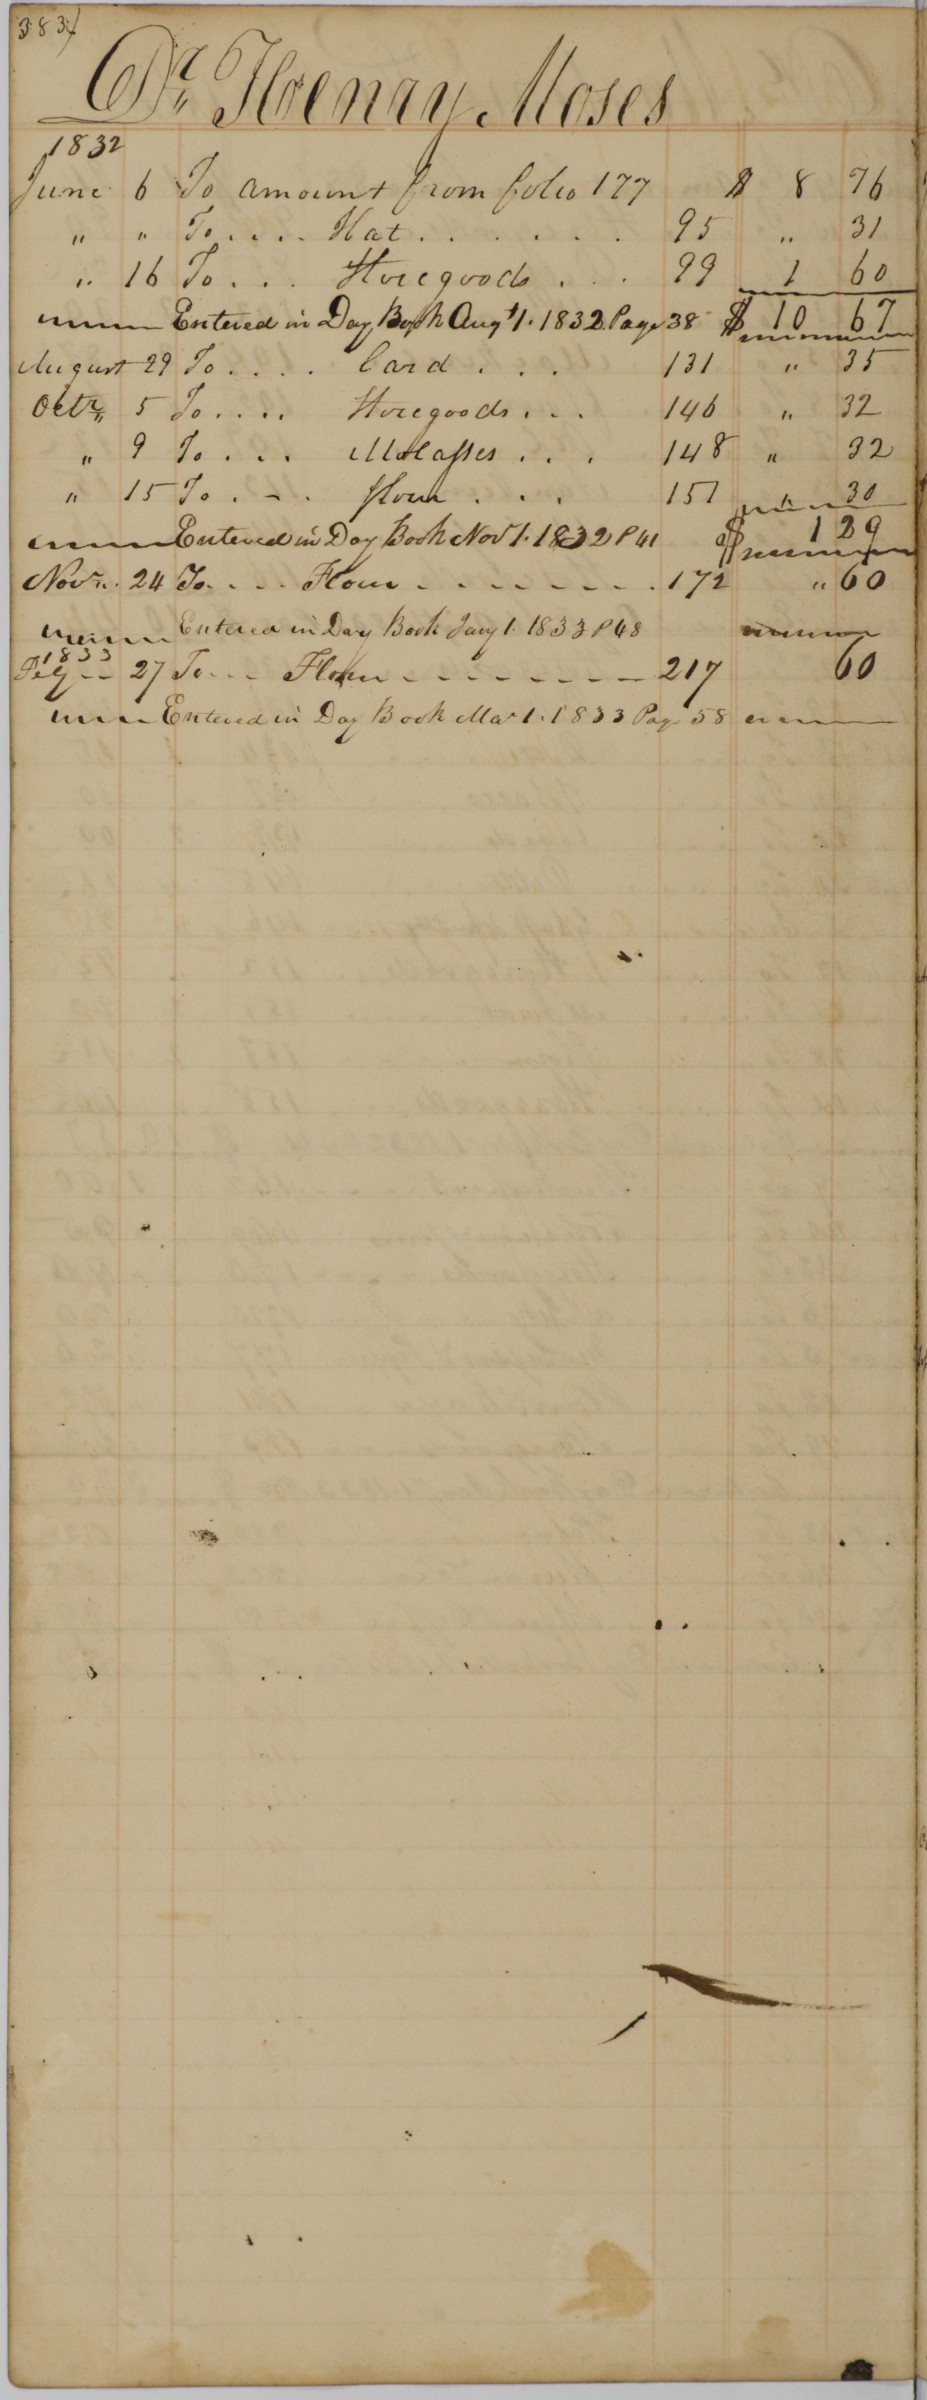 383/
Dr. Henry Moses
1832
June 6 To amount from folio 177 $ 8 76
" " To .... Hat ...... 95 " 31
" 16 To ... Storegoods ... 99 1 60
Entered in Day Book Augt 1. 1832 Page 38 $ 10 67
August 29 To .... Card ... 131 " 35
Octr. 5 To .... Storegoods ... 146 " 32
" 9 To ... Molasses ... 148 " 32
" 15 To . - . flour ... 151 " 30
Entered in Day Book Novr 1. 1832 P 41 $ 1 29
Novr. 24 To. - - - Flour - - - - - - - - . 172 " 60
Entered in Day Book Jany 1. 1833 P 48
1833
Fey -- 27 To - - - Flour - - - - - - - - - 217 60
Entered in Day Book Mar 1. 1833 Page 58